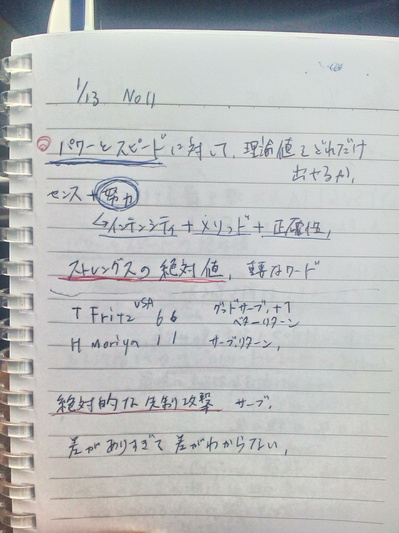 1/13 No11
パワーとスピードに対して、理論値をどれだけ
出せるか、
センス+努力
↳インテンシティ+メソッド+正確性、
ストレングスの絶対値、事はワード
T Fritz USA 6 6 グッドサーブ、+1
ベターリターン
H moriya 1 1 サーブ、リターン、
絶対的な先制攻撃 サーブ、
差がありすぎて差がわからない、